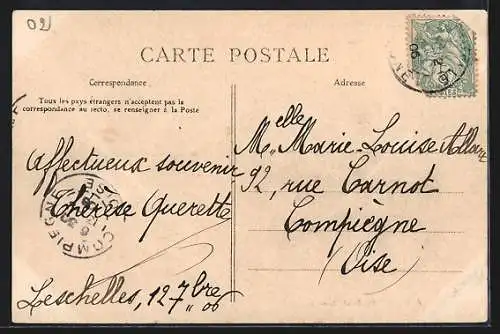 02
CARTE POSTALE
Correspondance
Tous les pays étrangers n'acceptent pas la
correspondance au recto, se renseigner à la Poste
Affectueux souvenir
Thérèse Querette
Leschelles, 12 7bre 06
COMPIEGNE
Adresse
Melle Marie-Louise
92, rue Carnot
Compiègne
(Oise)